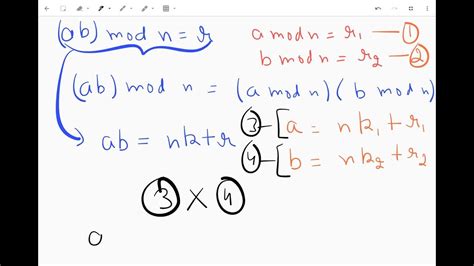 (ab) mod n = r
a mod n = r₁ — ①
b mod n = r₂ — ②
(ab) mod n = (a mod n) (b mod n)
ab = nk+r
③ — [a = nk₁ + r₁
④ — [b = nk₂ + r₂
③ × ④
a